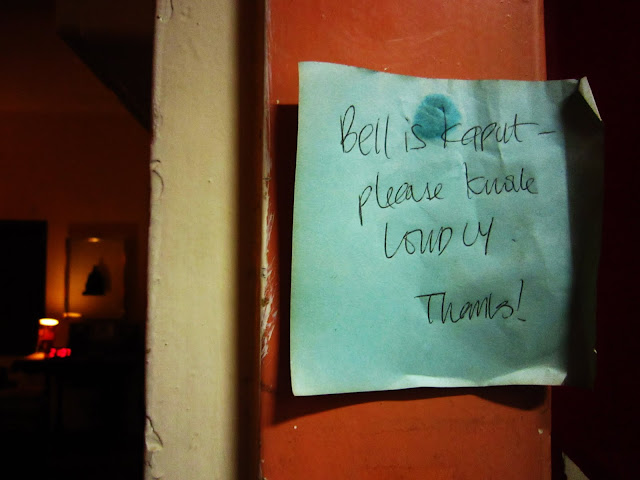 Bell is kaput –
please knock
LOUDLY
Thanks!